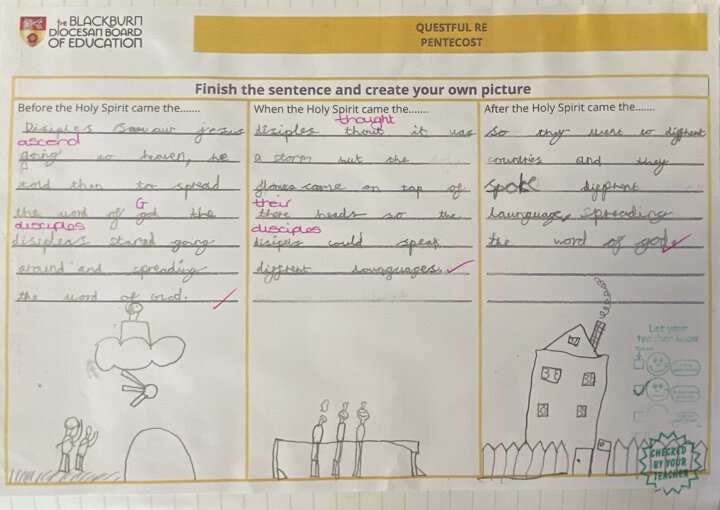 THE BLACKBURN
DIOCESAN BOARD
OF EDUCATION
QUESTFUL RE
PENTECOST
Finish the sentence and create your own picture
Before the Holy Spirit came the.......
Disiples jesus
ascend
going to heaven, he
told them to spread
G
the word of god the
disciples
disiplers started going
around and spreading
the word of God.
When the Holy Spirit came the.......
thought
disiples thout it was
a storm but the
came on top of
their
there heads so the
disciples
disipels could speak
diffrent launguages.
After the Holy Spirit came the.......
so they went to diffrent
countries and they
spoke diffrent
launguage, spreading
the word of god
Let your
teacher know
CHECKED
BY YOUR
TEACHER